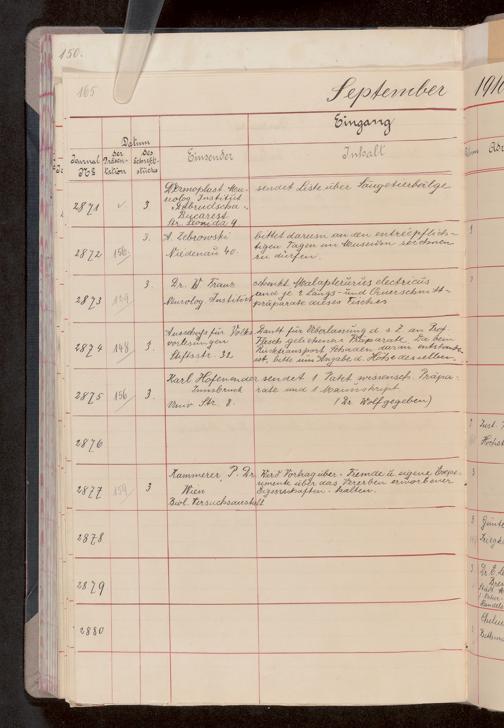 150.
165
September
1910
Eingang
Datum
Journal
№
der
Präsen-
tation
des
Schrift-
stücks
Einsender
Inhalt
2871
3
Dermoplast Mu-
seolog. Institut
Bucarest
Str. Leonida 4
sendet Liste über Säugetierbälge
2872
156
3.
A. Zebrowski
Niedenau 40.
bittet darum an den entréepflich-
tigen Tagen im Museum zeichnen
zu dürfen.
2873
129
3
Dr. V Franz
Neurolog. Institut
schenkt Malapterurus electricus
und je 2 Längs- und Querschnitt-
präparate dieses Fisches
2874
148
3
Ausschuss für Volks-
vorlesungen
Stiftsstr. 32
Dankt für Überlassung d. s. Z. an Prof.
geliehenen Präparate. Da beim
Rücktransport Schäden daran entstanden
ist, bitte um Angabe d. Höhe desselben
2875
156
3.
Karl Hofenender
Innsbruck
Univ Str. 8.
sendet 1 Paket wissensch. Präpa-
rate und 1 Manuskript
(Dr. Wolf gegeben)
2876
2877
159
3
Kammerer, P. Dr.
Wien
Biol. Versuchsanstalt
Wird Vortrag über „Fremde u. eigene Expe-
rimente über das Vererben erworbener
Eigenschaften" halten.
2878
2879
2880